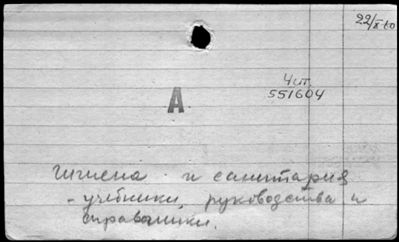 22/X 60
Чит.
551604
А
Гигиена и санитария
- учебники, руководства и
справочники.